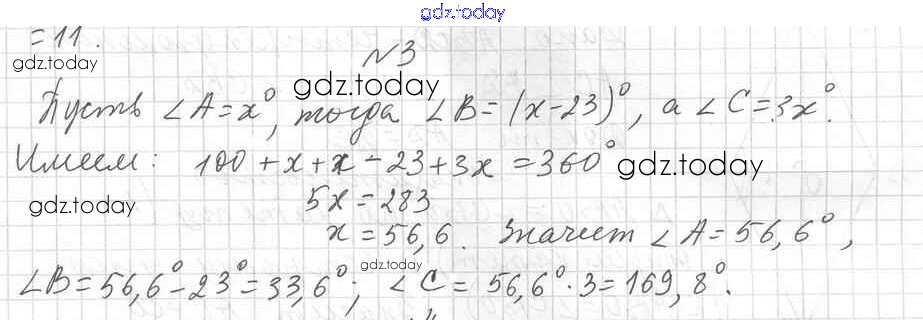 gdz.today
= 11.
gdz.today
№3
gdz.today
Пусть ∠A = x°, тогда ∠B = (x - 23)°, а ∠C = 3x°.
Имеем: 100 + x + x - 23 + 3x = 360°
gdz.today
5x = 283
gdz.today
x = 56,6. Значит ∠A = 56,6°,
gdz.today
∠B = 56,6° - 23° = 33,6°; ∠C = 56,6° · 3 = 169,8°.